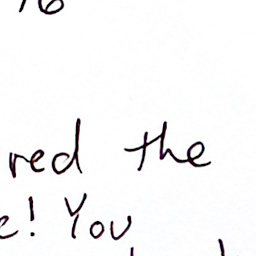 16
red the
e! You